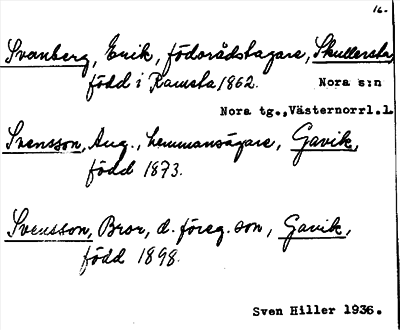 16.
Svanberg, Erik, födorådstagare, Skullersta,
född i Ramsta 1862. Nora s:n
Nora tg., Västernorrl.l.
Svensson, Aug., hemmansägare, Gavik,
född 1873.
Svensson, Bror, d. föreg. son, Gavik,
född 1898.
Sven Hiller 1936.